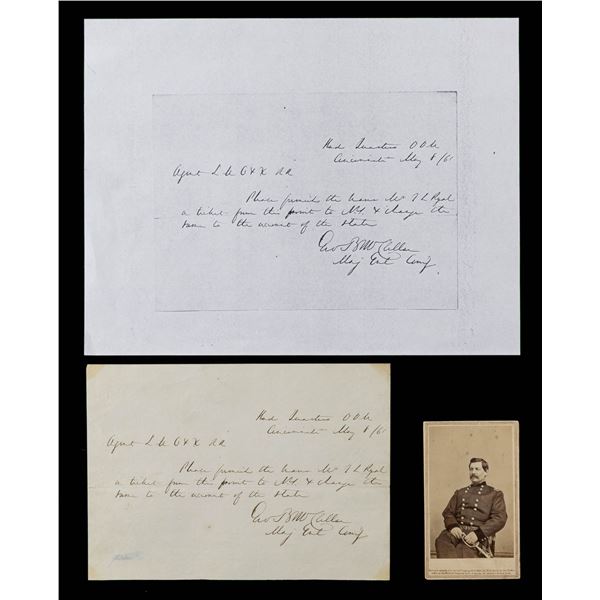 Head Quarters O V M
Cincinnati May 8/61
Agent L M C & X RR
Please furnish the bearer Mr T L
a ticket from this point to N.Y. & charge the
same to the account of the State
Geo B McClellan
Maj Genl Comg
Head Quarters O V M
Cincinnati May 8/61
Agent L M C & X RR
Please furnish the bearer Mr T L
a ticket from this point to N.Y. & charge the
same to the account of the State
Geo B McClellan
Maj Genl Comg